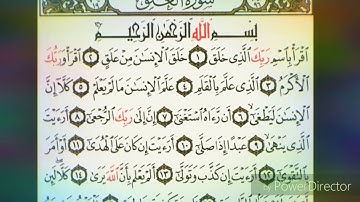 سورة العلق
بِسْمِ اللَّهِ الرَّحْمَٰنِ الرَّحِيمِ
ٱقْرَأْ بِٱسْمِ رَبِّكَ ٱلَّذِى خَلَقَ ١ خَلَقَ ٱلْإِنسَـٰنَ مِنْ عَلَقٍ ٢ ٱقْرَأْ وَرَبُّكَ
ٱلْأَكْرَمُ ٣ ٱلَّذِى عَلَّمَ بِٱلْقَلَمِ ٤ عَلَّمَ ٱلْإِنسَـٰنَ مَا لَمْ يَعْلَمْ ٥ كَلَّآ إِنَّ
ٱلْإِنسَـٰنَ لَيَطْغَىٰٓ ٦ أَن رَّءَاهُ ٱسْتَغْنَىٰٓ ٧ إِنَّ إِلَىٰ رَبِّكَ ٱلرُّجْعَىٰٓ ٨ أَرَءَيْتَ
ٱلَّذِى يَنْهَىٰ ٩ عَبْدًا إِذَا صَلَّىٰٓ ١٠ أَرَءَيْتَ إِن كَانَ عَلَى ٱلْهُدَىٰٓ ١١ أَوْ أَمَرَ
بِٱلتَّقْوَىٰٓ ١٢ أَرَءَيْتَ إِن كَذَّبَ وَتَوَلَّىٰٓ ١٣ أَلَمْ يَعْلَم بِأَنَّ ٱللَّهَ يَرَىٰ ١٤ كَلَّا لَئِن
PowerDirector